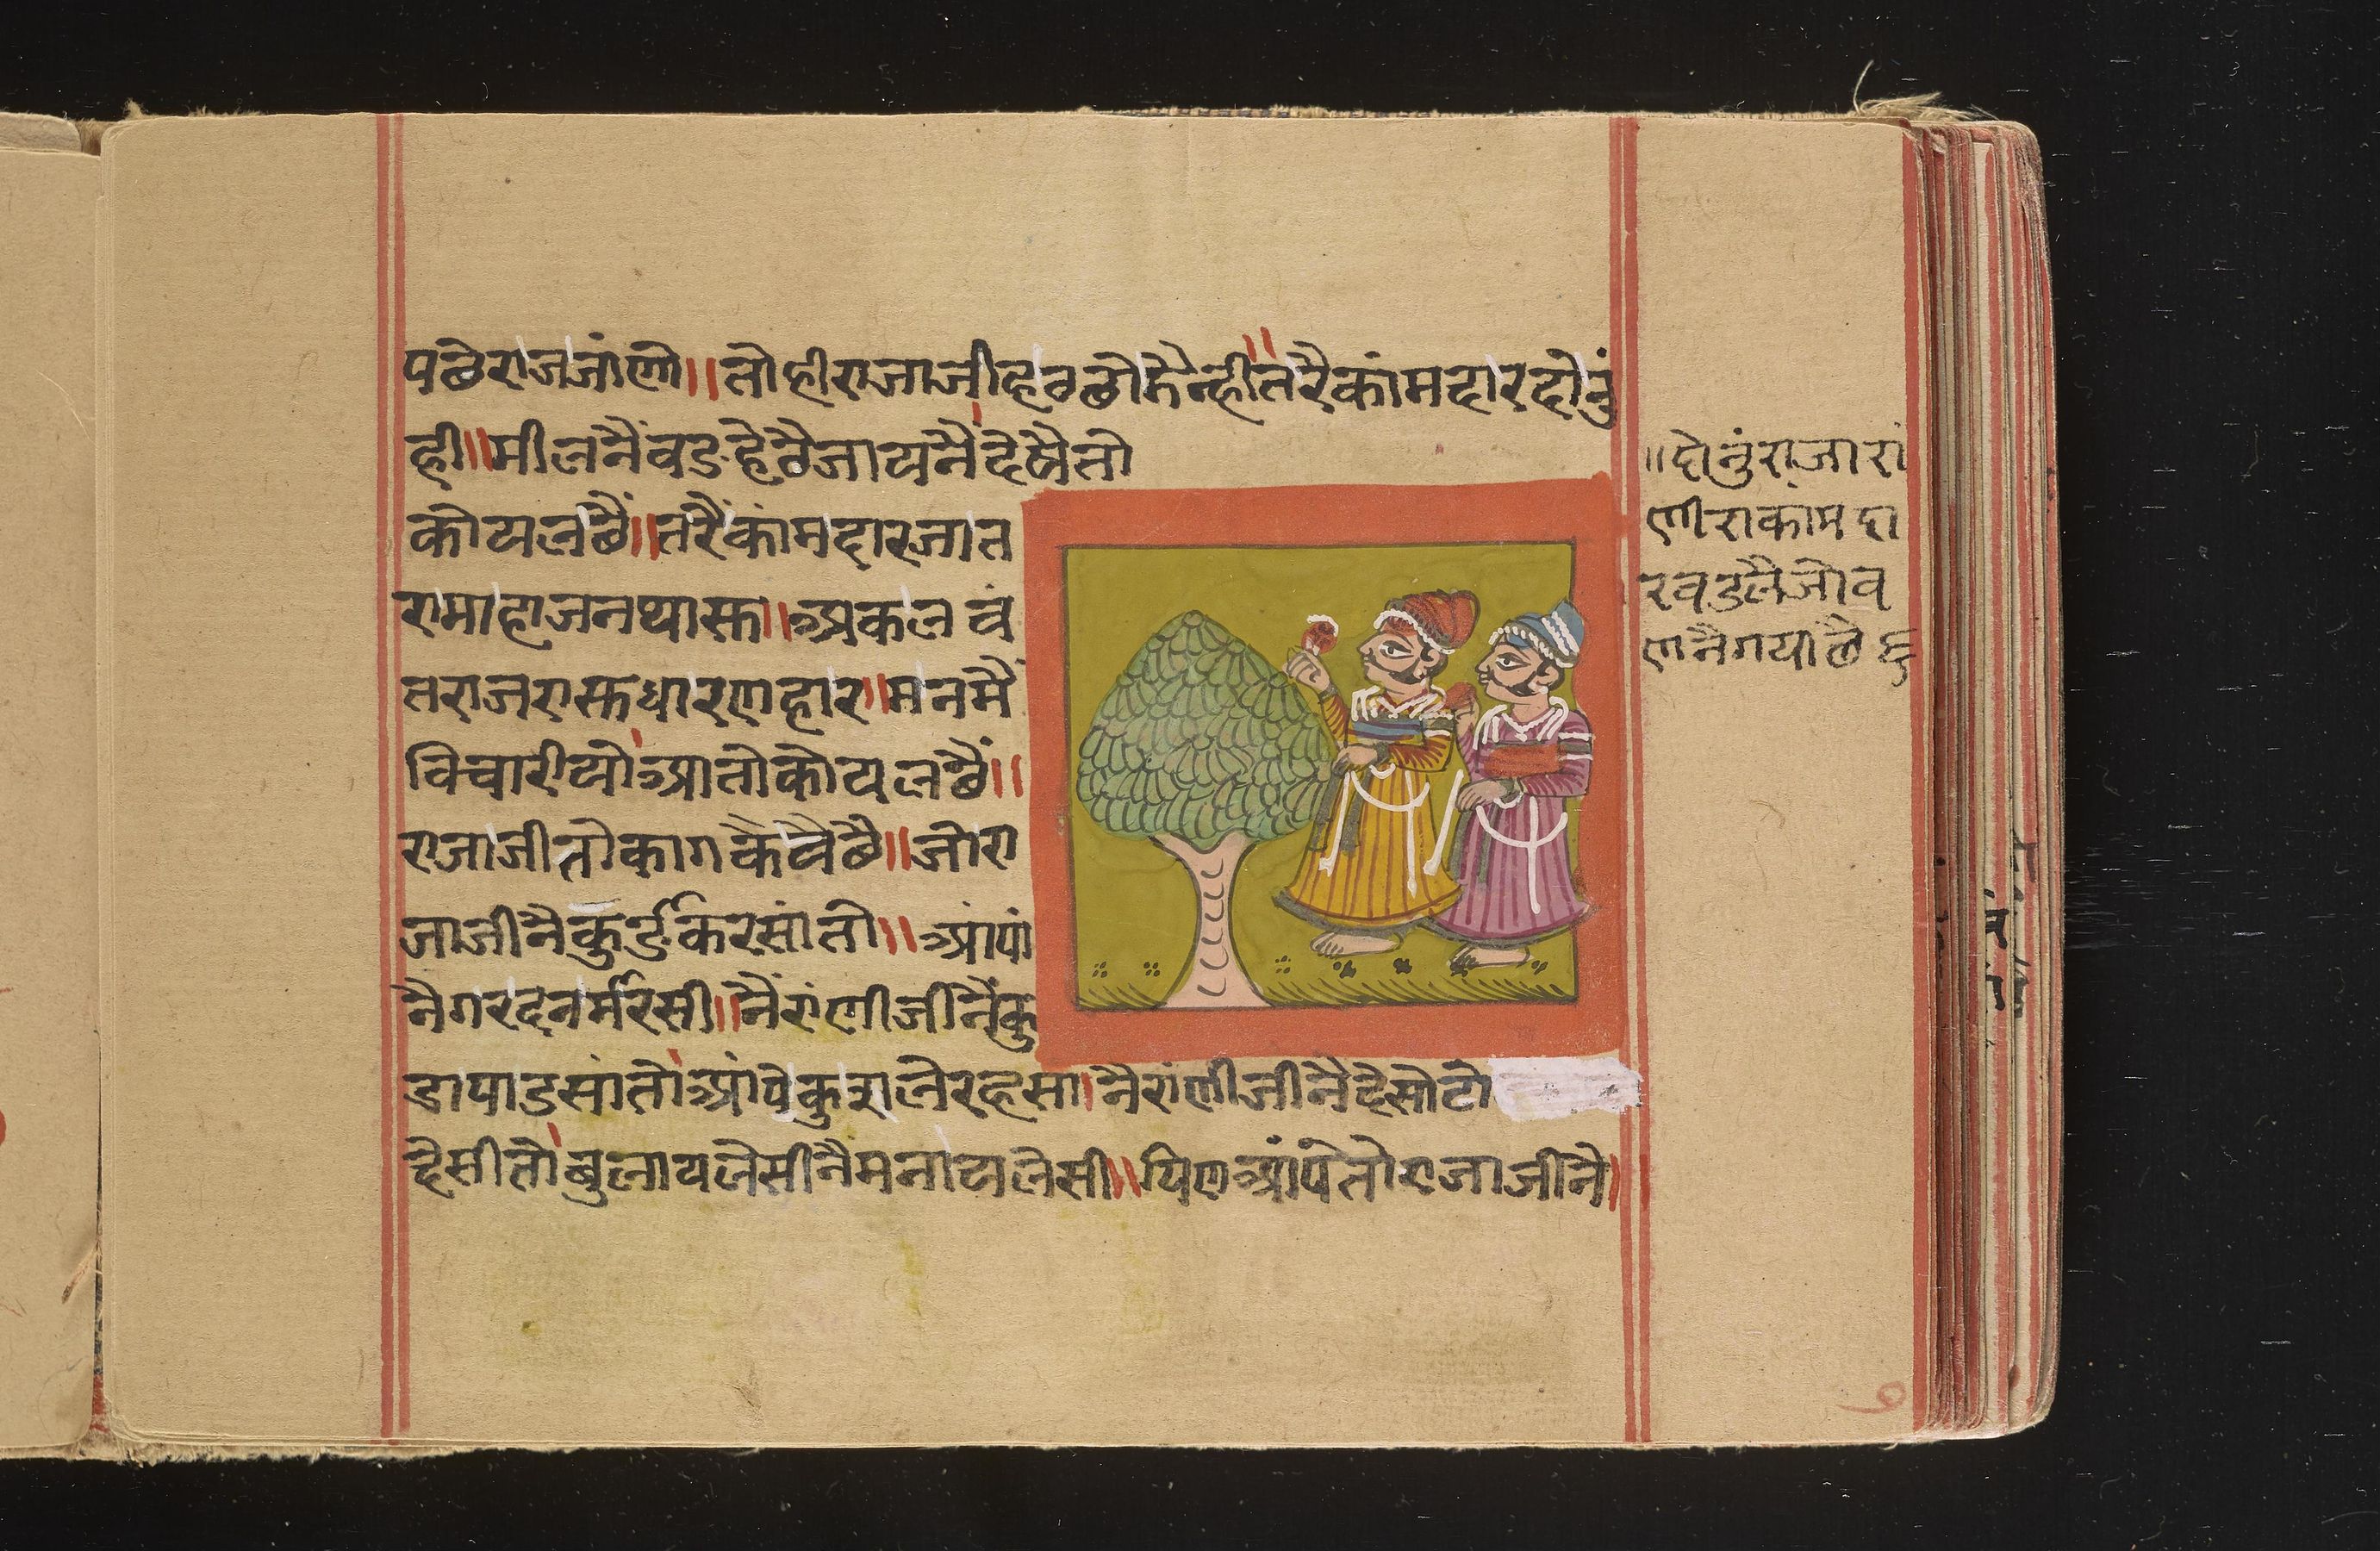 पछेराजजांणे॥तोहीराजाजीहठछोडैन्ही॥तरैकांमदारदोनुं
ही॥मीलनैंवडहेठैजायनैदेषैतो
कोयलछैं॥तरैंकांमदारजात
रामाहाजनथास्क॥अकलवं
तराजरास्कधारणहार॥मनमैं
विचारीयोआतोकोयलछैं॥
राजाजीतोकागकैवैछै॥जोरा
जाजीनैकुर्डकरसांतो॥आंपां
नैगरदनर्मारसी॥नैंरांणीजीनैंकु
डापाडसांतोआंपेकुरालेरहसा।नैरांणीजीनैदेसोटो
देसीतोबुलायलेसीनैमनायलेसी॥पिणआंपेतोराजाजीनै॥
॥दोनुंराजारां
णीराकांमदा
रवडलैजोव
णनैगयाछै